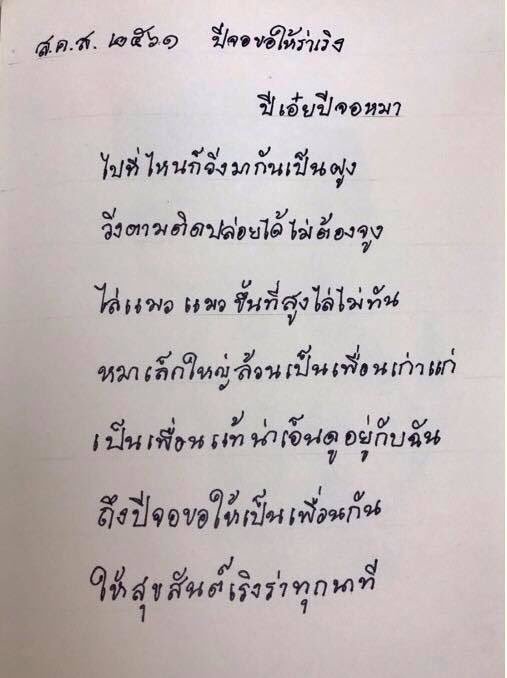 ส.ค.ส. ๒๕๖๑ ปีจอขอให้ร่าเริง
ปีเอ๋ยปีจอหมา
ไปที่ไหนก็วิ่งมากันเป็นฝูง
วิ่งตามติดปล่อยได้ไม่ต้องจูง
ไล่แมว แมวขึ้นที่สูงไล่ไม่ทัน
หมาเล็กใหญ่ล้วนเป็นเพื่อนเก่าแก่
เป็นเพื่อนแท้น่าเอ็นดูอยู่กับฉัน
ถึงปีจอขอให้เป็นเพื่อนกัน
ให้สุขสันต์เริงร่าทุกนาที